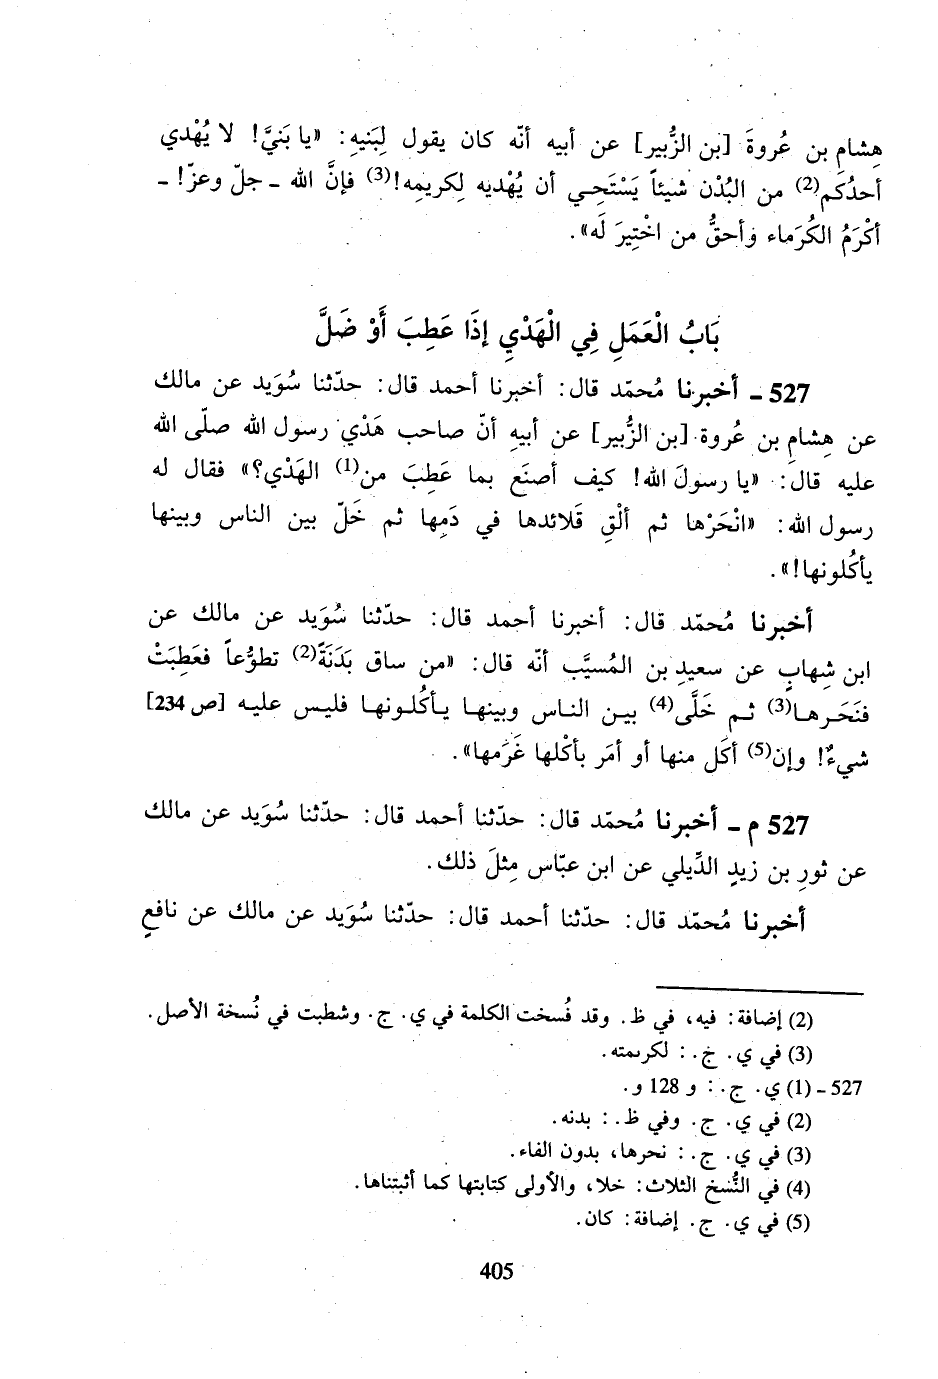 هِشام بن عُروةَ [بن الزُّبير] عن أبيه أنّه كان يقول لِبَنيهِ: «يا بَنيَّ! لا يُهْدي
أحدُكَم(2) من البُدْن شيئاً يَسْتَحِـي أن يُهْديه لِكريمِه!(3) فإنَّ الله ـ جلّ وعزّ! ـ
أكْرَمُ الكُرَماء وَأحقُّ من اخْتِيرَ لَه».
بَابُ الْعَمَلِ فِي الْهَدْيِ إِذَا عَطِبَ أَوْ ضَلَّ
527 ـ أخبرنا مُحمّد قال: أخبرنا أحمد قال: حدّثنا سُوَيد عن مالك
عن هِشامِ بن عُروة [بن الزُّبير] عن أبيهِ أنّ صاحب هَدْي رسول الله صلّى الله
عليه قال: «يا رسولَ الله! كيف أصنَع بما عَطِبَ من(1) الهَدْي؟» فقال له
رسول الله: «انْحَرْها ثم ألْقِ قَلائدها في دَمِها ثم خَلّ بين الناس وبينها
يأكُلونها!».
أخبرنا مُحمّد قال: أخبرنا أحمد قال: حدّثنا سُوَيد عن مالك عن
ابن شِهابٍ عن سعيدِ بن المُسيَّب أنّه قال: «من ساق بَدَنَةً(2) تطوُّعاً فعَطِبَتْ
فنَحَـرهـا(3) ثـم خَلَّى(4) بيـن النـاس وبينهـا يـأكُلـونهـا فليـس عليـه [ص 234]
شيءٌ! وإن(5) أكَل منها أو أمَر بأكْلها غَرَمها».
527 م ـ أخبرنا مُحمّد قال: حدّثنا أحمد قال: حدّثنا سُوَيد عن مالك
عن ثورِ بن زيدٍ الدِّيلي عن ابن عبّاس مِثلَ ذلك.
أخبرنا مُحمّد قال: حدّثنا أحمد قال: حدّثنا سُوَيد عن مالك عن نافعٍ
(2) إضافة: فيه، في ظ. وقد فُسخت الكلمة في ي. ج. وشطبت في نُسخة الأصل.
(3) في ي. خ. : لكريمته.
527 ـ (1) ي. ج. : و 128 و.
(2) في ي. ج. وفي ظ. : بدنه.
(3) في ي. ج. : نحرها، بدون الفاء.
(4) في النُّسخ الثلاث: خلا، والأولى كتابتها كما أثبتناها.
(5) في ي. ج. إضافة: كان.
405